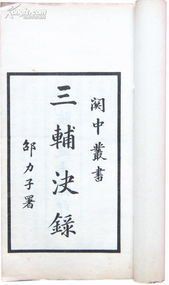 關中叢書
三輔決録
邵力子署